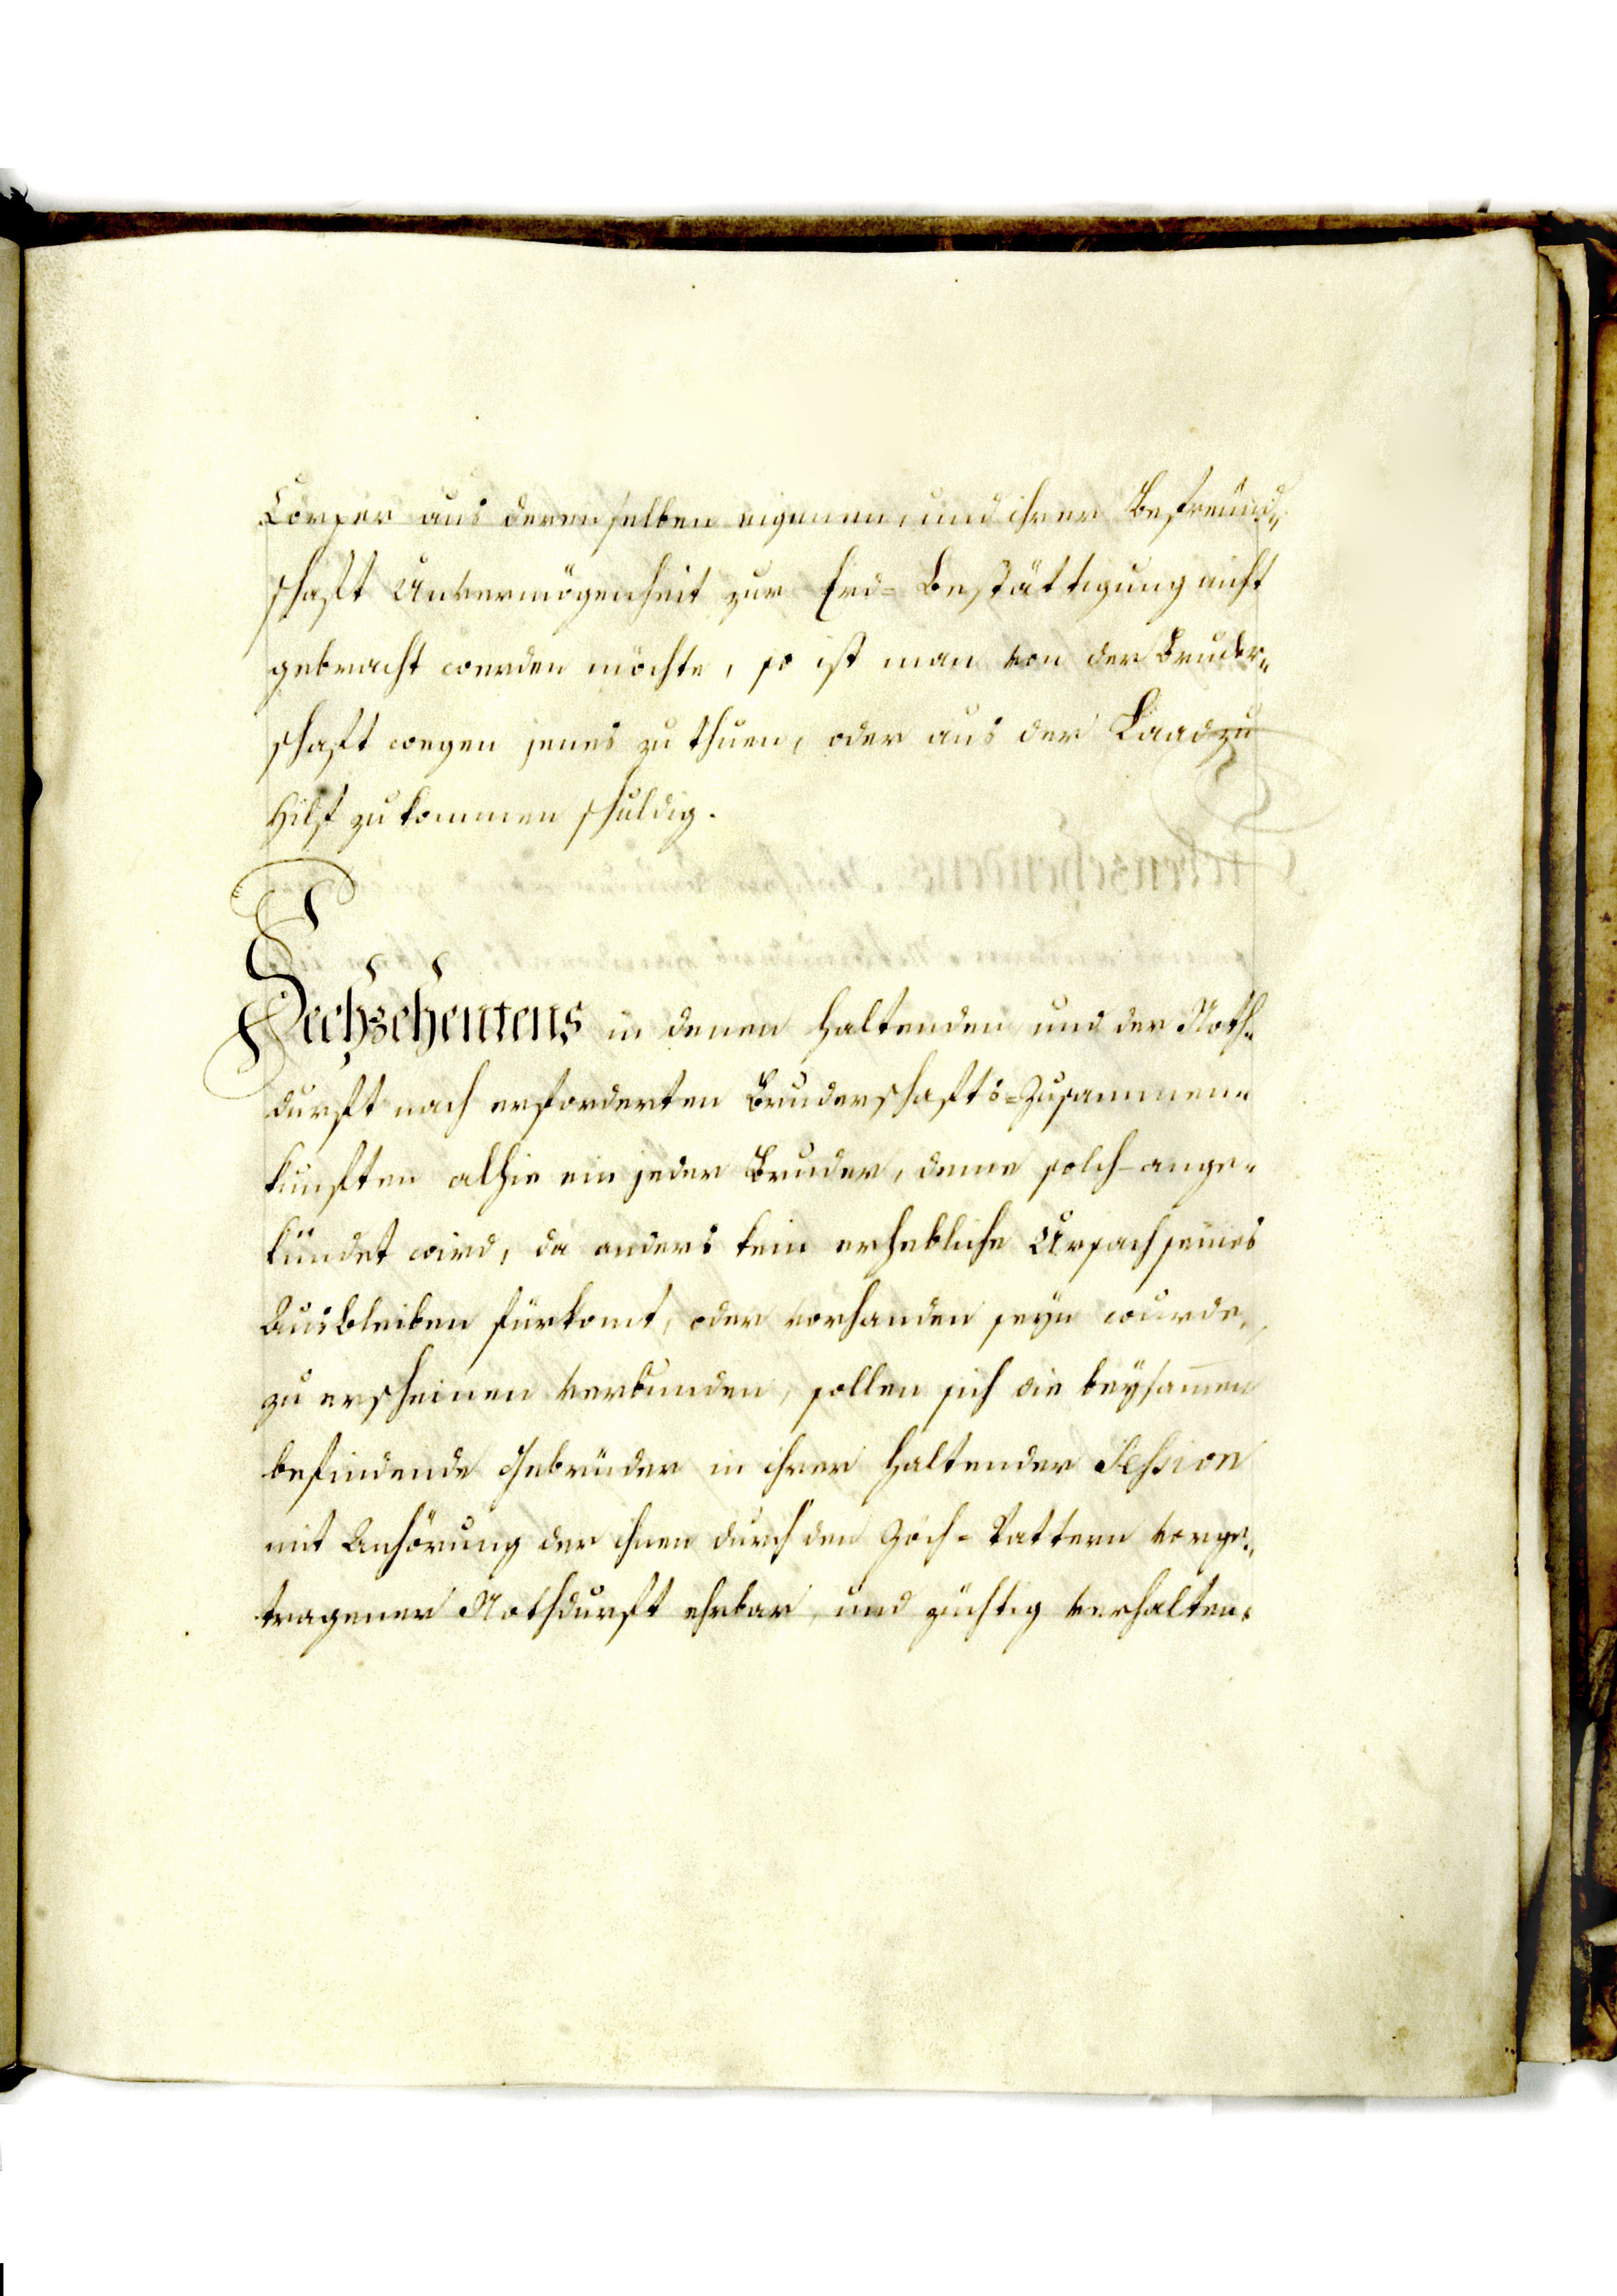 Cörper aus derenselben eigenen, und ihrer Befreünd„
schaft Unvermögenheit zur Erd=Bestättigung nicht
gebracht werden möchte, so ist man von der Bruder„
schaft wegen jenes zu thuen, oder aus der Laad zu
Hilf zu kommen schuldig.
Sechzehentens in denen haltenden und der Noth„
durft nach erforderten Bruderschafts=Zusammen„
kunften alhie ein jeder Bruder, deme solch ange„
kündet wird, da anders kein erhebliche Ursach seines
Ausbleiben fürkomt, oder vorhanden seyn wurde,
zu erscheinen verbunden, sollen sich die beysam̅en
befindende Gebrüder in ihrer haltender Session
mit Anhörung der ihnen durch den Zöch=Vattern vorge„
tragener Nothdurft ehrbar, und züchtig verhalten.